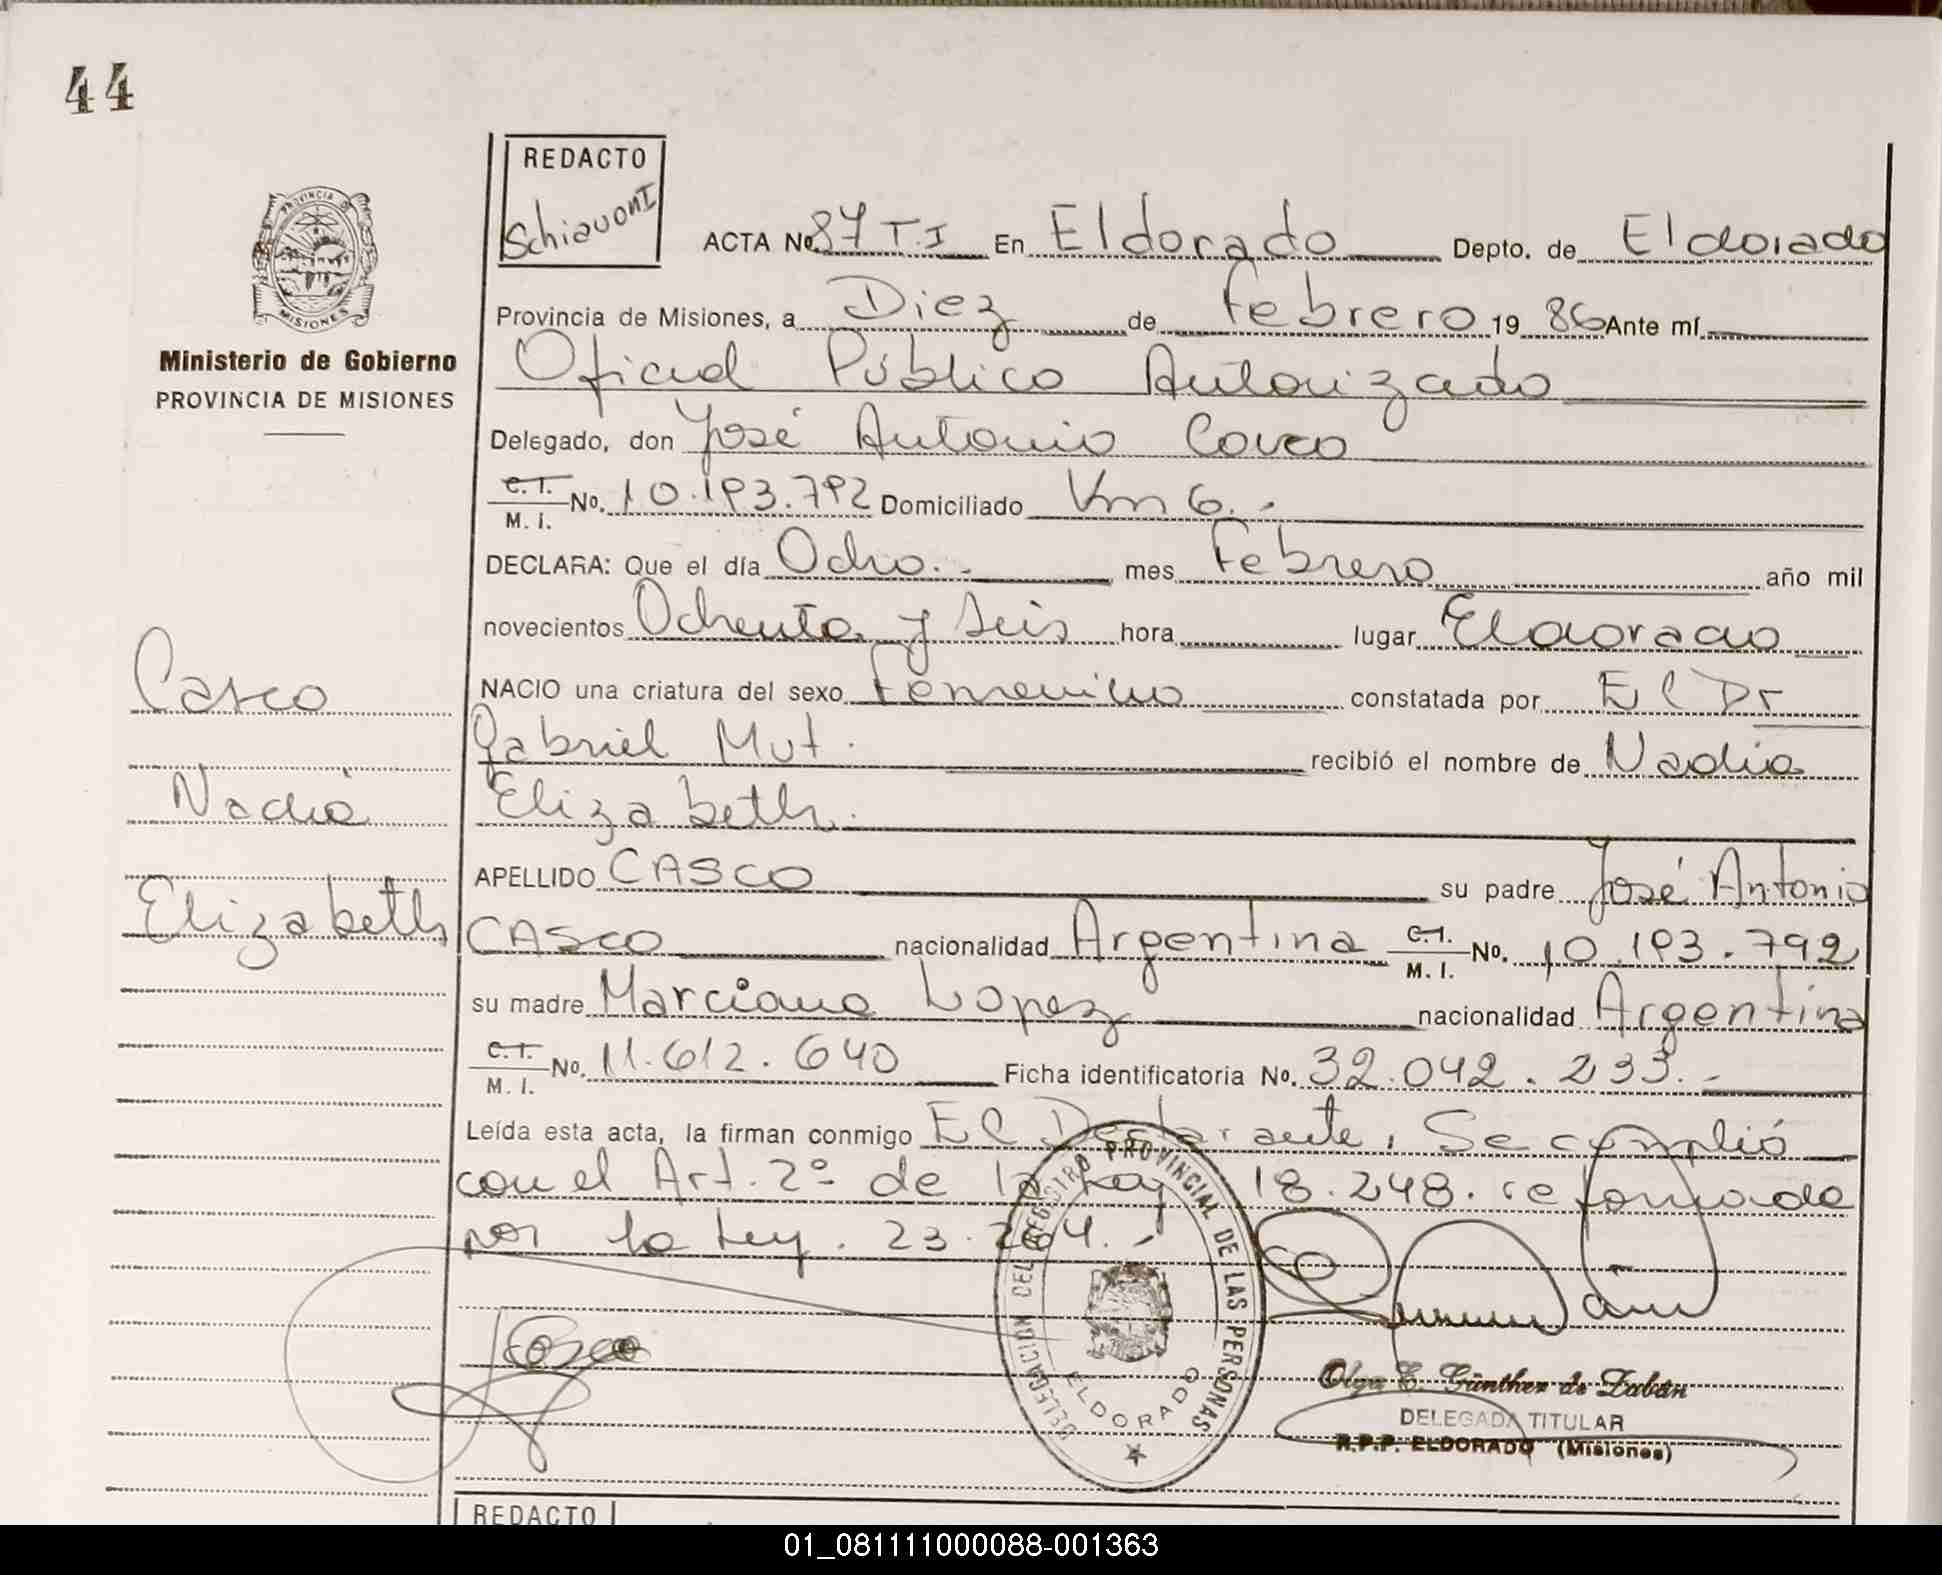 44
REDACTO
Schiavoni
PROVINCIA
MISIONES
Ministerio de Gobierno
PROVINCIA DE MISIONES
ACTA No. 87 T.I En Eldorado Depto. de Eldorado
Provincia de Misiones, a Diez de Febrero 19 86 Ante mí.
Oficial Público Autorizado
Delegado, don José Antonio Casco
C.I. M.I. No. 10.193.792 Domiciliado Km 6.-
DECLARA: Que el día Ocho.- mes Febrero año mil
novecientos Ochenta y Seis hora lugar Eldorado
NACIO una criatura del sexo Femenino constatada por El Dr
Gabriel Mut. recibió el nombre de Nadia
Elizabeth.
APELLIDO CASCO su padre José Antonio
CASCO nacionalidad Argentina C.I. M.I. No. 10.193.792
su madre Marciana Lopez nacionalidad Argentina
C.I. M.I. No. 11.612.640 Ficha identificatoria No. 32.042.233.-
Leída esta acta, la firman conmigo El Declarante, Se cumplió
con el Art. 2º de la Ley 18.248. reformada
por la Ley. 23.264.-
Casco
Nadia
Elizabeth
Casco
DELEGACION DEL REGISTRO PROVINCIAL DE LAS PERSONAS
ELDORADO
Olga E. Günther de Zabán
DELEGADA TITULAR
R.P.P. ELDORADO (Misiones)
REDACTO
01_081111000088-001363